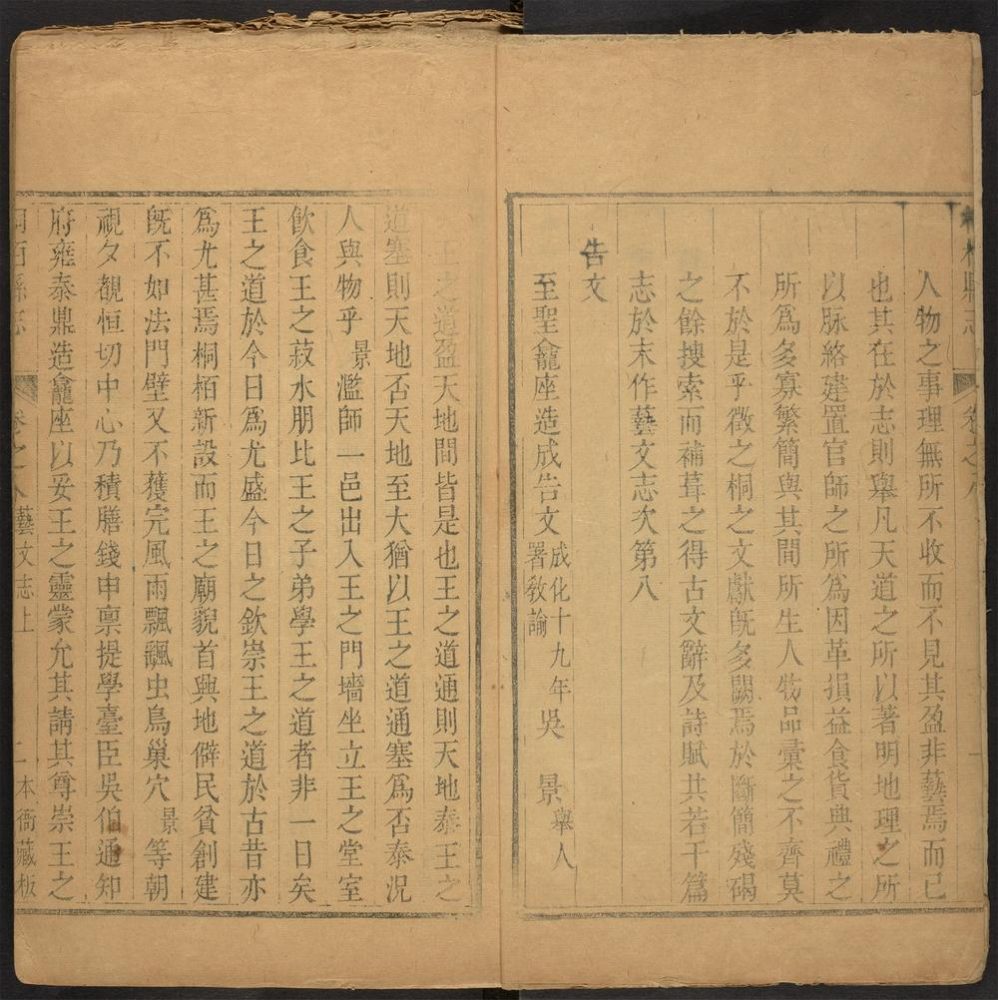 柏縣志
卷之八
一
人物之事理無所不收而不見其盈非藝焉而已
也其在於志則舉凡天道之所以著明地理之所
以脉絡建置官師之所為因革損益食貨典禮之
所爲多寡繁簡與其間所生人物品彙之不齊莫
不於是乎徵之桐之文獻旣多闕焉於斷簡殘碣
之餘搜索而補葺之得古文辭及詩賦共若干篇
志於末作藝文志次第八
告文
至聖龕座造成告文 成化十九年署教諭 吳景 舉人
王之道盈天地間皆是也王之道通則天地泰王之
道塞則天地否天地至大猶以王之道通塞爲否泰況
人與物乎景濫師一邑出入王之門墻坐立王之堂室
飲食王之菽水朋比王之子弟學王之道者非一日矣
王之道於今日爲尤盛今日之欽崇王之道於古昔亦
爲尤甚焉桐栢新設而王之廟貌首興地僻民貧創建
旣不如法門壁又不獲完風雨飄颻虫鳥巢穴景等朝
視夕覩恒切中心乃積膳錢申禀提學臺臣吳伯通知
府雍泰鼎造龕座以妥王之靈蒙允其請其尊崇王之
桐栢縣志
卷之八
藝文志上
二
本衙藏板